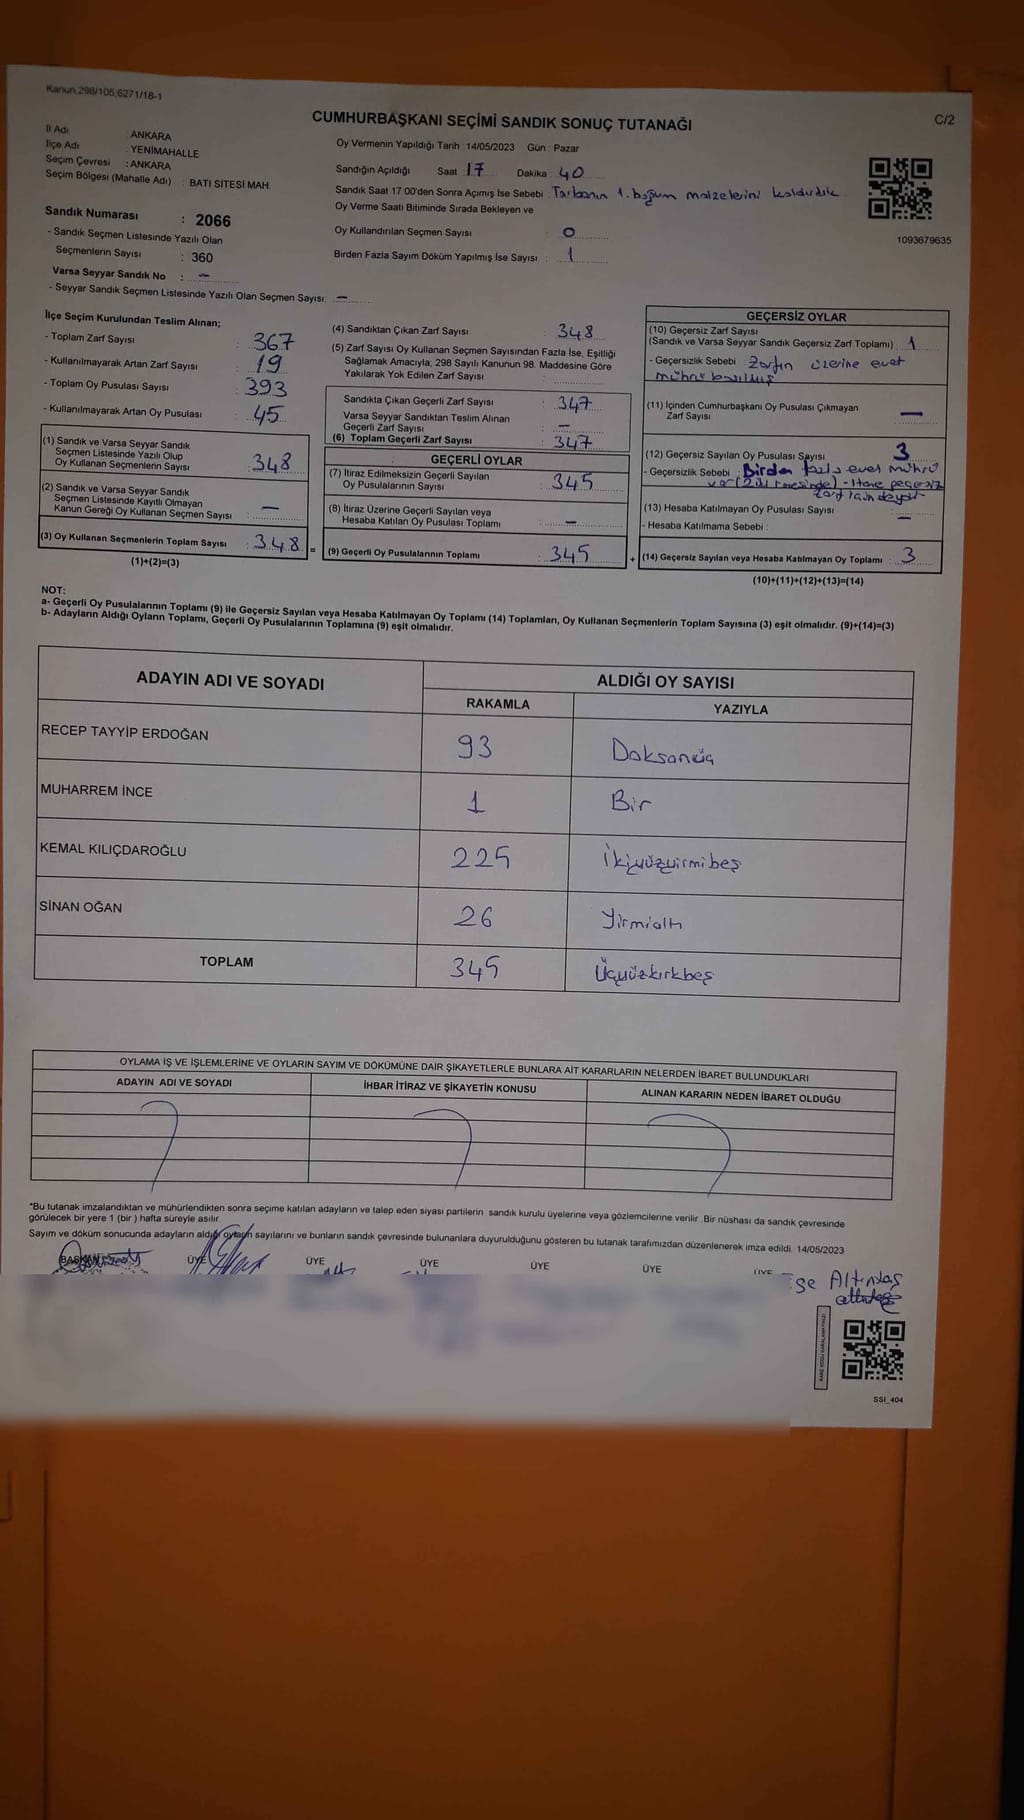 Kanun,298/105,6271/18-1
CUMHURBAŞKANI SEÇİMİ SANDIK SONUÇ TUTANAĞI
C/2
İl Adı : ANKARA
İlçe Adı : YENİMAHALLE
Seçim Çevresi : ANKARA
Seçim Bölgesi (Mahalle Adı) : BATI SİTESİ MAH.
Sandık Numarası : 2066
- Sandık Seçmen Listesinde Yazılı Olan
Seçmenlerin Sayısı : 360
Varsa Seyyar Sandık No : -
- Seyyar Sandık Seçmen Listesinde Yazılı Olan Seçmen Sayısı: -
Oy Vermenin Yapıldığı Tarih :14/05/2023 Gün : Pazar
Sandığın Açıldığı Saat : 17 Dakika : 40
Sandık Saat 17:00'den Sonra Açımış İse Sebebi : 1. malzelerini kaldırdık
Oy Verme Saati Bitiminde Sırada Bekleyen ve
Oy Kullandırılan Seçmen Sayısı : 0
Birden Fazla Sayım Döküm Yapılmış İse Sayısı : 1
1093679635
İlçe Seçim Kurulundan Teslim Alınan;
- Toplam Zarf Sayısı : 367
- Kullanılmayarak Artan Zarf Sayısı : 19
- Toplam Oy Pusulası Sayısı : 393
- Kullanılmayarak Artan Oy Pusulası : 45
(1) Sandık ve Varsa Seyyar Sandık
Seçmen Listesinde Yazılı Olup
Oy Kullanan Seçmenlerin Sayısı : 348
(2) Sandık ve Varsa Seyyar Sandık
Seçmen Listesinde Kayıtlı Olmayan
Kanun Gereği Oy Kullanan Seçmen Sayısı : -
(3) Oy Kullanan Seçmenlerin Toplam Sayısı : 348
(1)+(2)=(3)
=
(4) Sandıktan Çıkan Zarf Sayısı : 348
(5) Zarf Sayısı Oy Kullanan Seçmen Sayısından Fazla İse, Eşitliği
Sağlamak Amacıyla; 298 Sayılı Kanunun 98. Maddesine Göre
Yakılarak Yok Edilen Zarf Sayısı :
Sandıkta Çıkan Geçerli Zarf Sayısı : 347
Varsa Seyyar Sandıktan Teslim Alınan
Geçerli Zarf Sayısı : -
(6) Toplam Geçerli Zarf Sayısı : 347
GEÇERLİ OYLAR
(7) İtiraz Edilmeksizin Geçerli Sayılan
Oy Pusulalarının Sayısı : 345
(8) İtiraz Üzerine Geçerli Sayılan veya
Hesaba Katılan Oy Pusulası Toplamı : -
(9) Geçerli Oy Pusulalarının Toplamı : 345
+
GEÇERSİZ OYLAR
(10) Geçersiz Zarf Sayısı
(Sandık ve Varsa Seyyar Sandık Geçersiz Zarf Toplamı) : 1
- Geçersizlik Sebebi : Zarfın üzerine evet
mührü basılmış
(11) İçinden Cumhurbaşkanı Oy Pusulası Çıkmayan
Zarf Sayısı : -
(12) Geçersiz Sayılan Oy Pusulası Sayısı : 3
- Geçersizlik Sebebi : Birden fazla evet mührü
var - 1 tane geçersiz
(13) Hesaba Katılmayan Oy Pusulası Sayısı : -
- Hesaba Katılmama Sebebi :
(14) Geçersiz Sayılan veya Hesaba Katılmayan Oy Toplamı : 3
(10)+(11)+(12)+(13)=(14)
NOT:
a- Geçerli Oy Pusulalarının Toplamı (9) ile Geçersiz Sayılan veya Hesaba Katılmayan Oy Toplamı (14) Toplamları, Oy Kullanan Seçmenlerin Toplam Sayısına (3) eşit olmalıdır. (9)+(14)=(3)
b- Adayların Aldığı Oyların Toplamı, Geçerli Oy Pusulalarının Toplamına (9) eşit olmalıdır.
ADAYIN ADI VE SOYADI
ALDIĞI OY SAYISI
RAKAMLA YAZIYLA
RECEP TAYYİP ERDOĞAN 93 Doksanüç
MUHARREM İNCE 1 Bir
KEMAL KILIÇDAROĞLU 225 İkiyüzyirmibeş
SİNAN OĞAN 26 Yirmialtı
TOPLAM 345 Üçyüzkırkbeş
OYLAMA İŞ VE İŞLEMLERİNE VE OYLARIN SAYIM VE DÖKÜMÜNE DAİR ŞİKAYETLERLE BUNLARA AİT KARARLARIN NELERDEN İBARET BULUNDUKLARI
ADAYIN ADI VE SOYADI İHBAR İTİRAZ VE ŞİKAYETİN KONUSU ALINAN KARARIN NEDEN İBARET OLDUĞU
*Bu tutanak imzalandıktan ve mühürlendikten sonra seçime katılan adayların ve talep eden siyasi partilerin sandık kurulu üyelerine veya gözlemcilerine verilir .Bir nüshası da sandık çevresinde
görülecek bir yere 1 (bir ) hafta süreyle asılır.
Sayım ve döküm sonucunda adayların aldığı oyların sayılarını ve bunların sandık çevresinde bulunanlara duyurulduğunu gösteren bu tutanak tarafımızdan düzenlenerek imza edildi. 14/05/2023
BAŞKAN ÜYE ÜYE ÜYE ÜYE ÜYE ÜYE
şe Altındaş
SSI_404